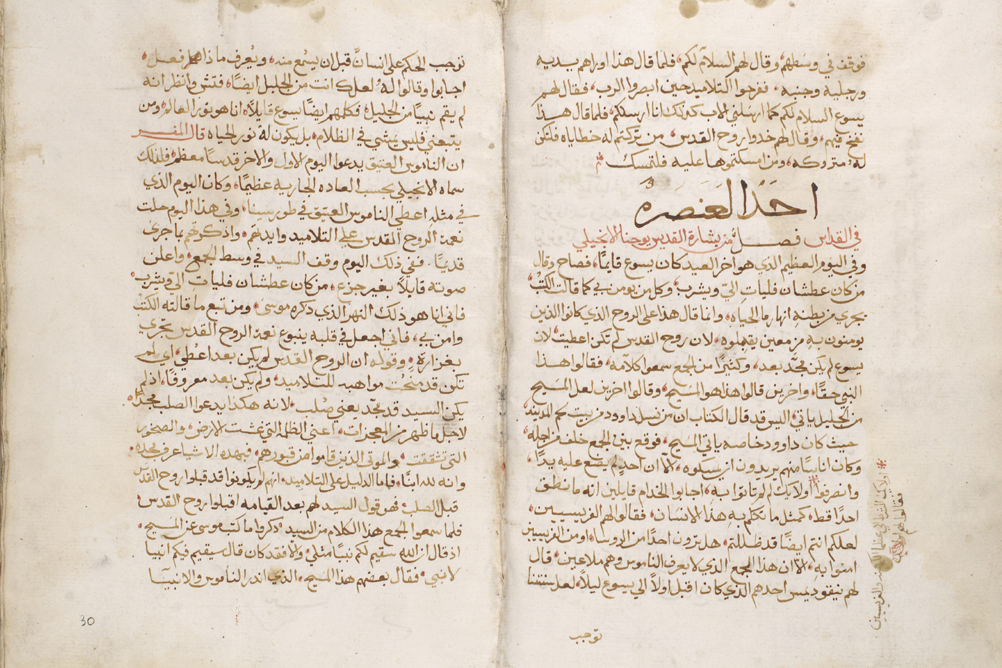 فوقف في وسطهم وقال لهم السلام لكم فلما قال هذا اوراهم يديه
ورجليه وجنبه ففرحوا التلاميذ حين ابصروا الرب فقال لهم
يسوع السلام لكم كما ارسلني الاب كذلك انا ارسلكم فلما قال هذا
نفخ فيهم وقال لهم خذوا روح القدس من تركتم له خطاياه فلتكن
له متروكه ومن امسكتموها عليه فلتمسك
احد العنصره
في القداس فصل من بشارة القديس يوحنا الانجيلي
وفي اليوم العظيم الذي هو اخر العيد كان يسوع قايمًا فصاح وقال
من كان عطشان فليات اليّ ويشرب وكل من يومن بي كما قالت الكتب
يجري من بطنه انهار ما الحياه وانما قال هذا على الروح الذي كانوا الذين
يومنون به مزمعين يقبلوه لان روح القدس لم تكن اعطيت لان
يسوع لم يكن مجد بعد وكثيرًا من الجمع سمعوا كلامه فقالوا هذا
النبي حقًا واخرين قالوا هذا هو المسيح وقالوا اخرين لعل المسيح
من الجليل ياتي اليس قد قال الكتاب ان من نسل داوود من بيت لحم المدينه
حيث كان داوود خاصه ياتي المسيح فوقع بين الجمع خلف من اجله
وكان اناسًا منهم يريدون ان يمسكوه الا ان احد لم يضع عليه يدًا
وانصرفوا اولايك لم ياتوا به اجابوا الخدام قايلين انه ما نطق
احدًا قط كمثل ما تكلم به هذا الانسان فقالوا لهم الفريسيين
لعلكم انتم ايضًا قد ضللتم هل ترون احدًا من الروسا او من الفريسيين
امنوا به الا ان هذا الجمع الذي لا يعرف الناموس وهم ملاعين قال
لهم نيقوديمس احدهم الذي كان اقبل اولاً الى يسوع ليلاً لعل سنتنا
توجب
توجب الحكم على انسان قبل ان يسمع منه ويعرف ماذا فعل
اجابوا وقالوا له لعلك انت من الجليل ايضًا فتش وانظر انه
لم يقم نبيًا من الجليل فكلمهم ايضًا يسوع قايلاً انا هو نور العالم ومن
يتبعني فليس يمشي في الظلام بل يكون له نور الحياه قال المفسر
ان الناموس العتيق يدعوا اليوم الاول والاخر قدسًا معظم فلذلك
سماه الانجيلي بحسب العاده الجاريه عظيمًا وكان اليوم الذي
في مثله اعطي الناموس العتيق في طور سينا وفي هذا اليوم حلت
نعمة الروح القدس على التلاميد وايدتهم واذكرهم ما جرى
قديمًا ففي ذلك اليوم وقف السيد في وسط الجمع واعلن
صوته قايلاً بغير جزع من كان عطشان فليات اليّ ويشرب
فاني انا هو ذلك النهر الذي ذكره موسى ومن تبع ما قالته الكتب
وامن بي فاني اجعل في قلبه ينبوع نعمة الروح القدس يجري
بغزارة وقوله ان الروح القدس لم يكن بعد اعطي اي لم
تكن قد منحت مواهبه للتلاميد ولم يكن بعد معروفًا اذ لم
يكن السيد قد مجد يعني صلب لانه هكذا يدعوا الصلب مجدًا
لاجل ما ظهر من المعجزات اعني الظلمة التي غشت الارض والصخور
التي تشققت والموتى الذين قاموا من قبورهم فبهذه الاشيا عرف مجده
وانه لله ابنًا فاما الدليل على التلاميد انهم لم يكونوا قد قبلوا روح القدس
قبل الصلب فهو قول السيد لهم بعد القيامه اقبلوا روح القدس
فلما سمعوا الجمع هذا الكلام من السيد ذكروا ما كتبه موسى عن المسيح
اذ قال ان الله سيقيم لكم نبيًا مثلي والا فقد كان قال سيقيم فيكم انبيا
لا نبي فقال بعضهم هذا المسيح الذي انذر الناموس والانبيا
30